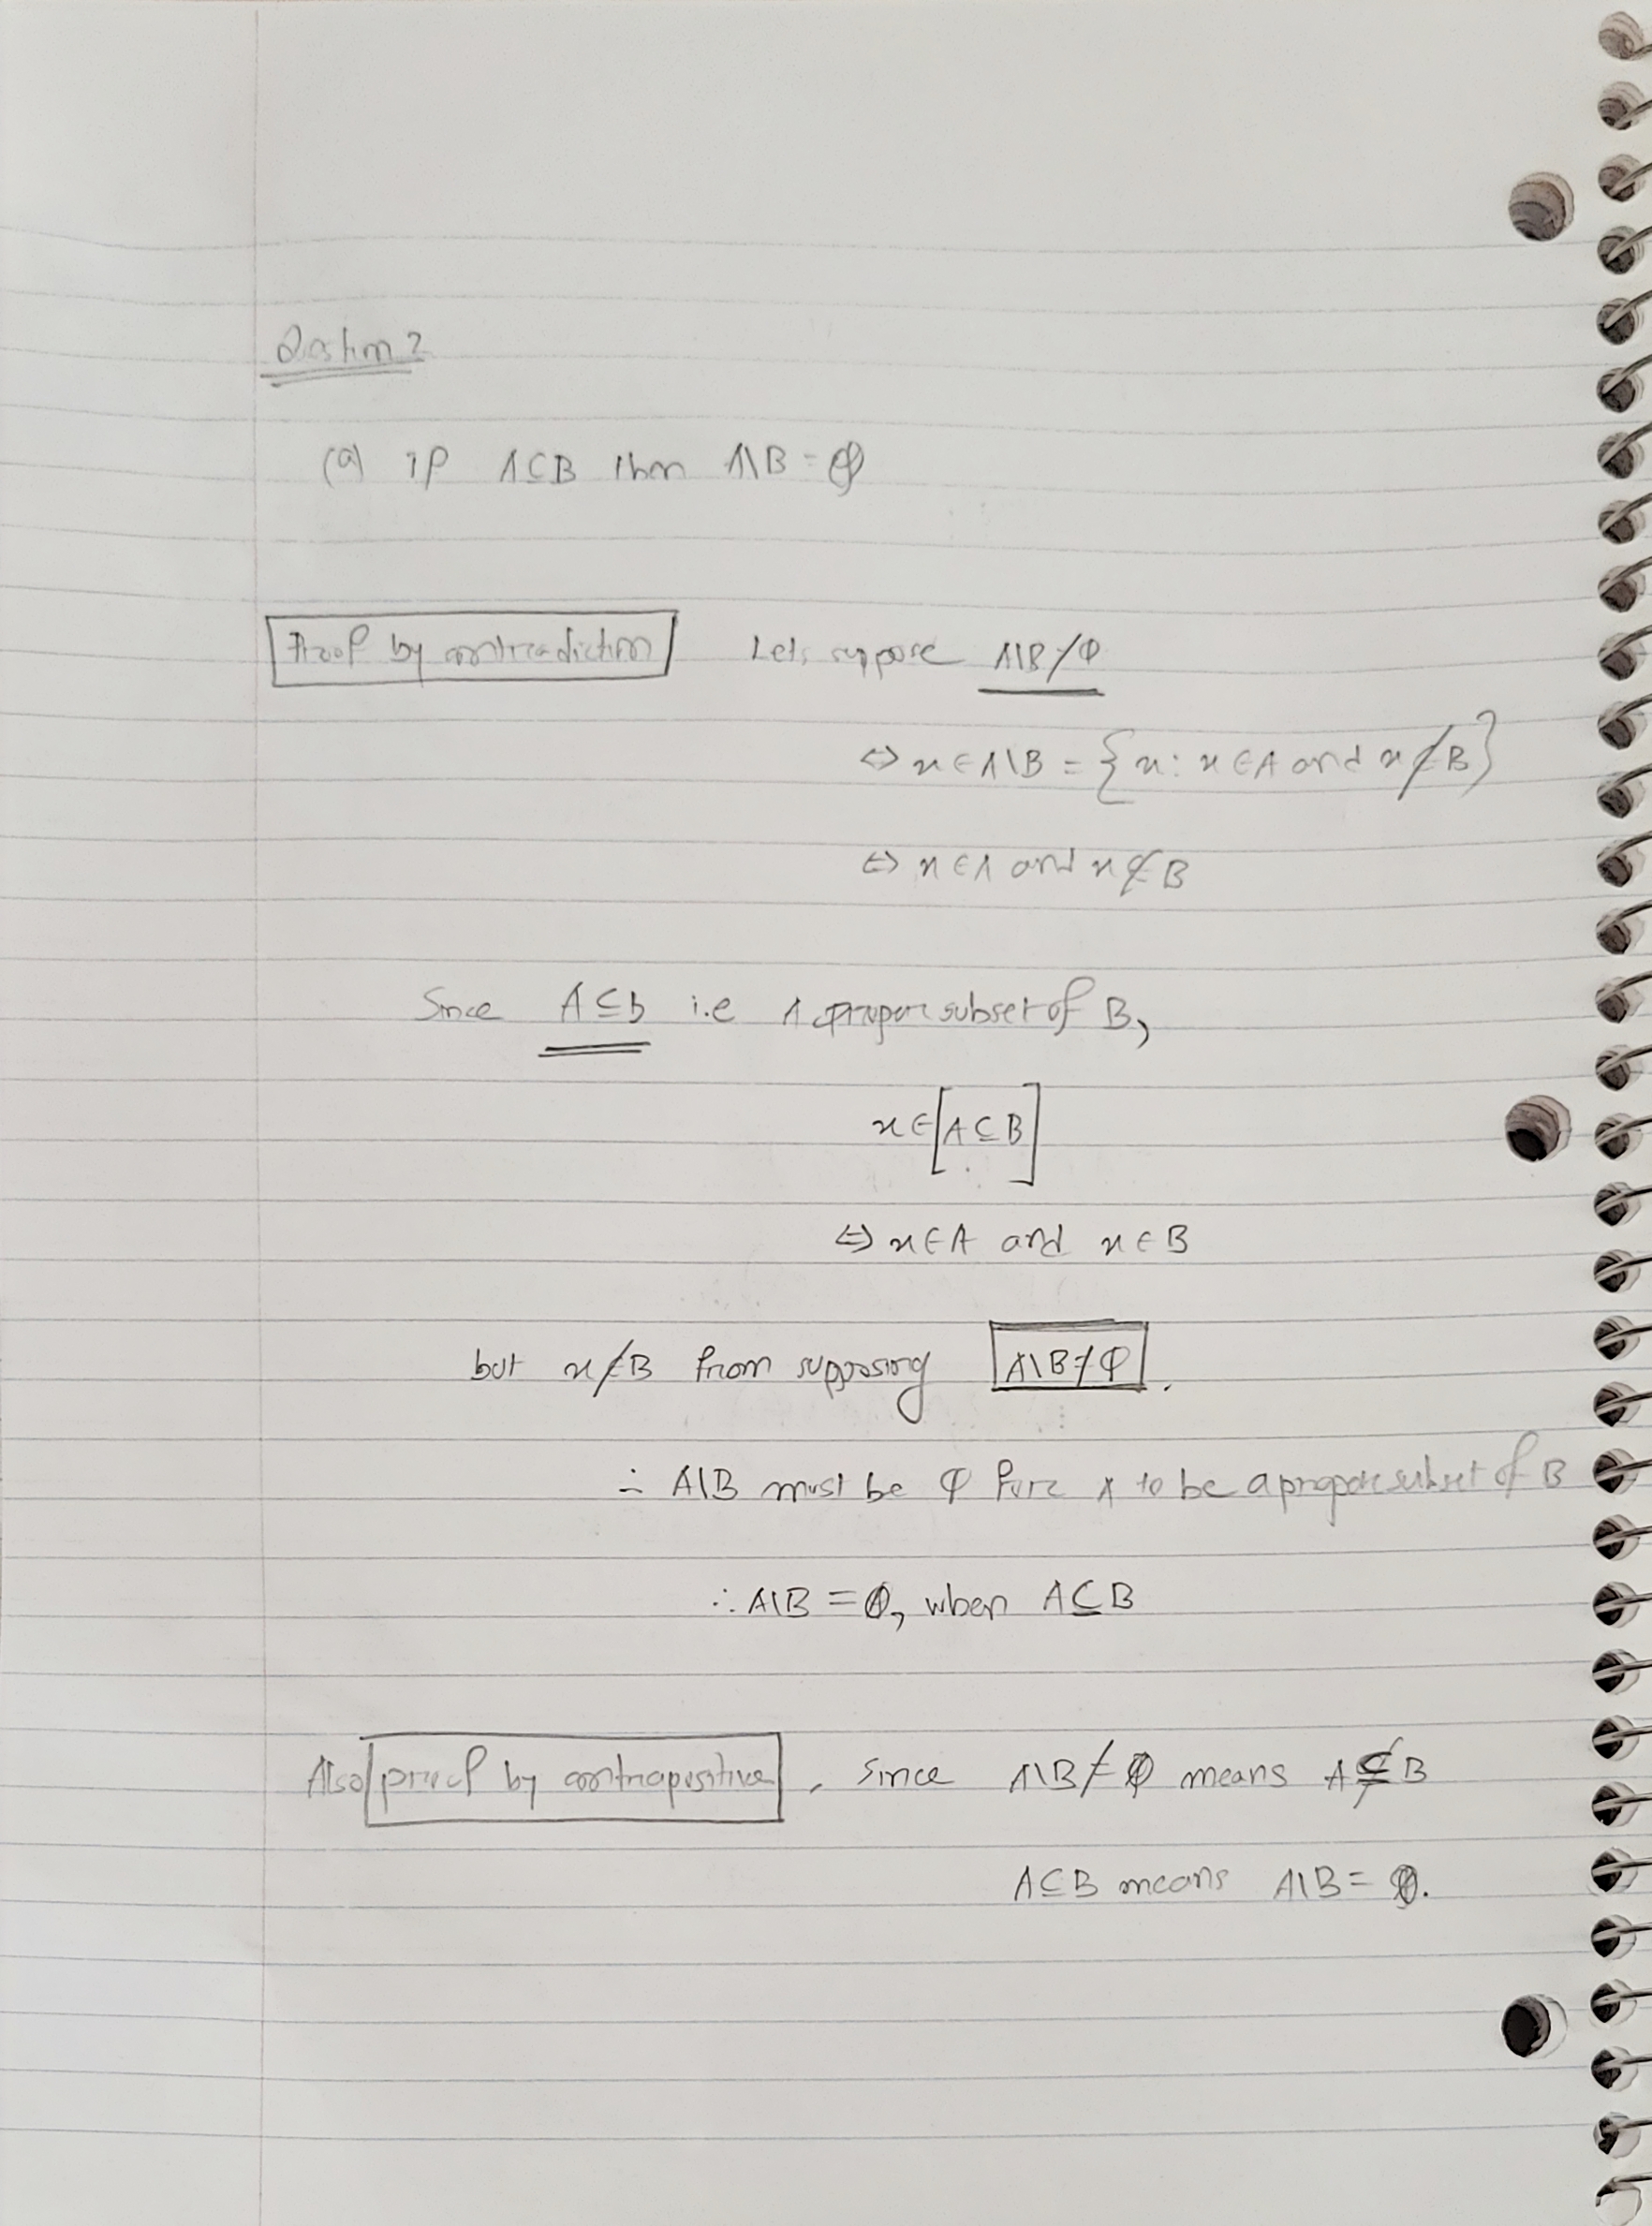 Question 2
(a) if A⊆B then A\B = ∅
Proof by contradiction Lets suppose A\B ≠ ∅
⇔ x ∈ A\B = {x : x ∈ A and x ∉ B}
⇔ x ∈ A and x ∉ B
Since A⊆B i.e A proper subset of B,
x ∈ [A⊆B]
⇔ x ∈ A and x ∈ B
but x ∉ B from supposing A\B ≠ ∅.
∴ A\B must be ∅ for A to be a proper subset of B
∴ A\B = ∅, when A⊆B
Also proof by contrapositive, Since A\B ≠ ∅ means A⊈B
A⊆B means A\B = ∅.